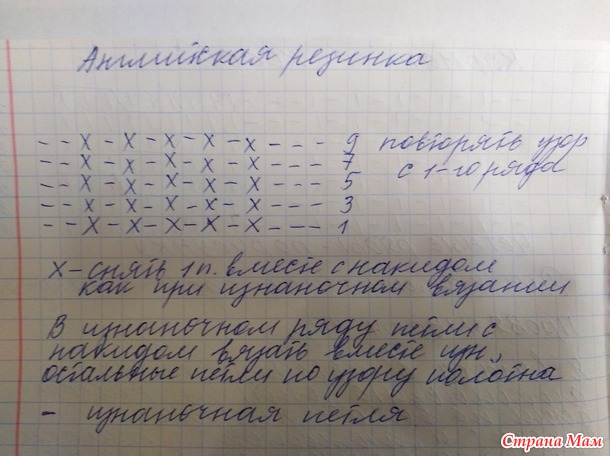 Английская резинка
- - X - X - X - X - X - - - 9 повторять узор
- - X - X - X - X - X - - - 7 с 1-го ряда
- - X - X - X - X - X - - - 5
- - X - X - X - X - X - - - 3
- - X - X - X - X - X - - - 1
X - снять 1 п. вместе с накидом
как при изнаночном вязании
В изнаночном ряду петли с
накидом вязать вместе изн.,
остальные петли по узору полотна
- изнаночная петля
Страна Мам